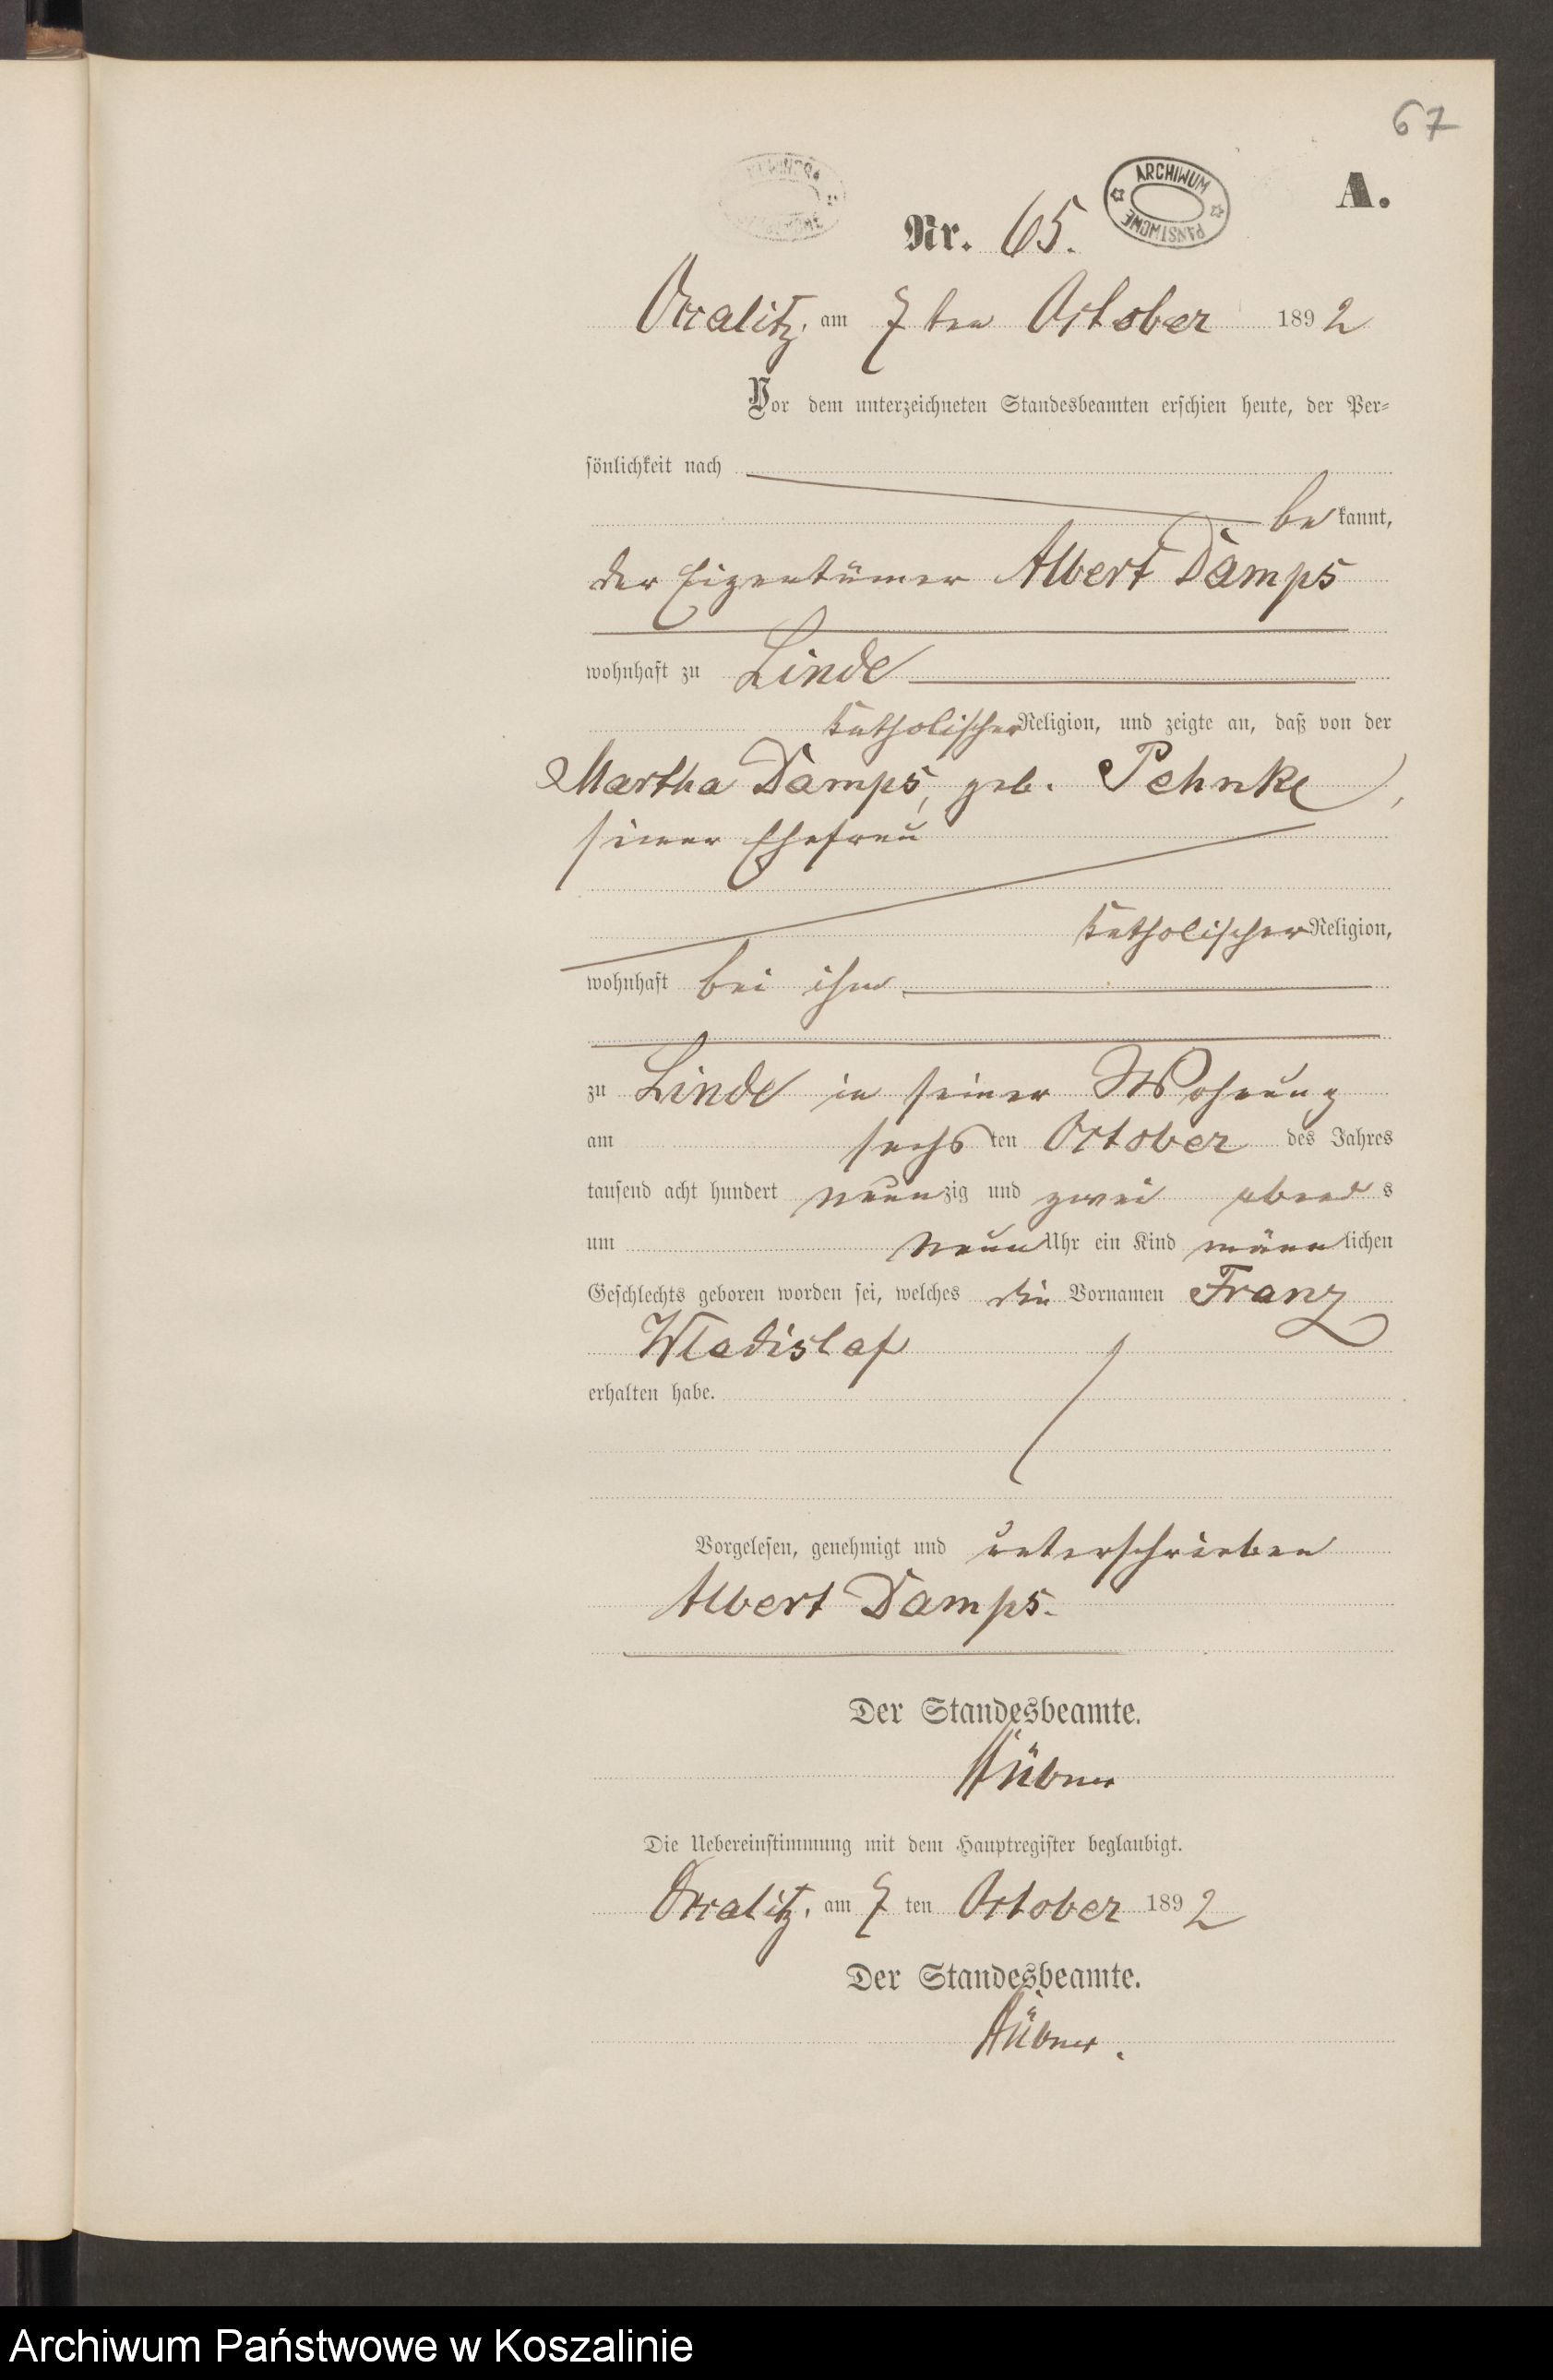 67
ARCHIWUM PAŃSTWOWE
A.
Nr. 65.
Occalitz, am 7ten October 1892
Vor dem unterzeichneten Standesbeamten erschien heute, der Per-
sönlichkeit nach
bekannt,
der Eigentümer Albert Damps
wohnhaft zu Linde
katholischer Religion, und zeigte an, daß von der
Martha Damps, geb. Pehnke,
seiner Ehefrau
katholischer Religion,
wohnhaft bei ihm
zu Linde in seiner Wohnung
am sechsten October des Jahres
tausend acht hundert neunzig und zwei abends
um neun Uhr ein Kind männlichen
Geschlechts geboren worden sei, welches die Vornamen Franz
Wladislaf
erhalten habe.
Vorgelesen, genehmigt und unterschrieben
Albert Damps.
Der Standesbeamte.
Hübner
Die Uebereinstimmung mit dem Hauptregister beglaubigt.
Occalitz, am 7ten October 1892
Der Standesbeamte.
Hübner.
Archiwum Państwowe w Koszalinie